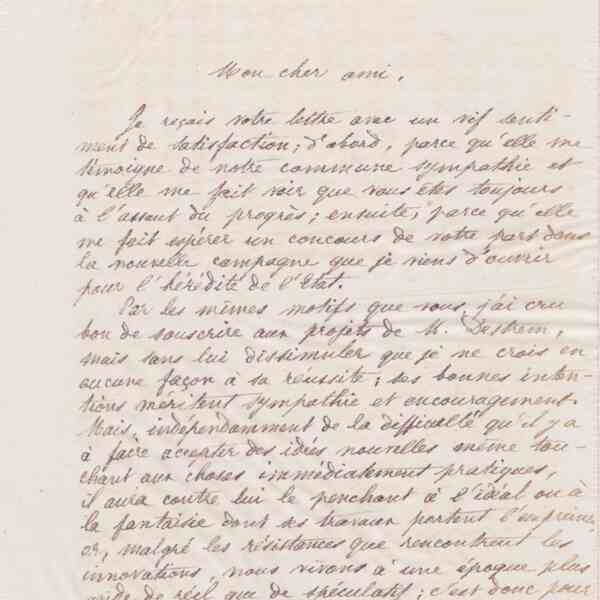 Mon cher ami,
Je reçois votre lettre avec un vif senti-
ment de satisfaction; d'abord, parce qu'elle me
témoigne de notre commune sympathie et
qu'elle me fait voir que vous êtes toujours
à l'assaut du progrès; ensuite, parce qu'elle
me fait espérer un concours de votre part dans
la nouvelle campagne que je viens d'ouvrir
pour l'hérédité de l'Etat.
Par les mêmes motifs que vous j'ai cru
bon de souscrire aux projets de M. Destrem,
mais sans lui dissimuler que je ne crois en
aucune façon à sa réussite; ses bonnes inten-
tions méritent sympathie et encouragement.
Mais, indépendamment de la difficulté qu'il y a
à faire accepter des idées nouvelles même tou-
chant aux choses immédiatement pratiques,
il aura contre lui le penchant à l'idéal ou à
la fantaisie dont ses travaux portent l'emprein-
or, malgré les résistances que rencontrent les
innovations, nous vivons à une époque plus
avide de réel que de spéculatif; c'est donc pour